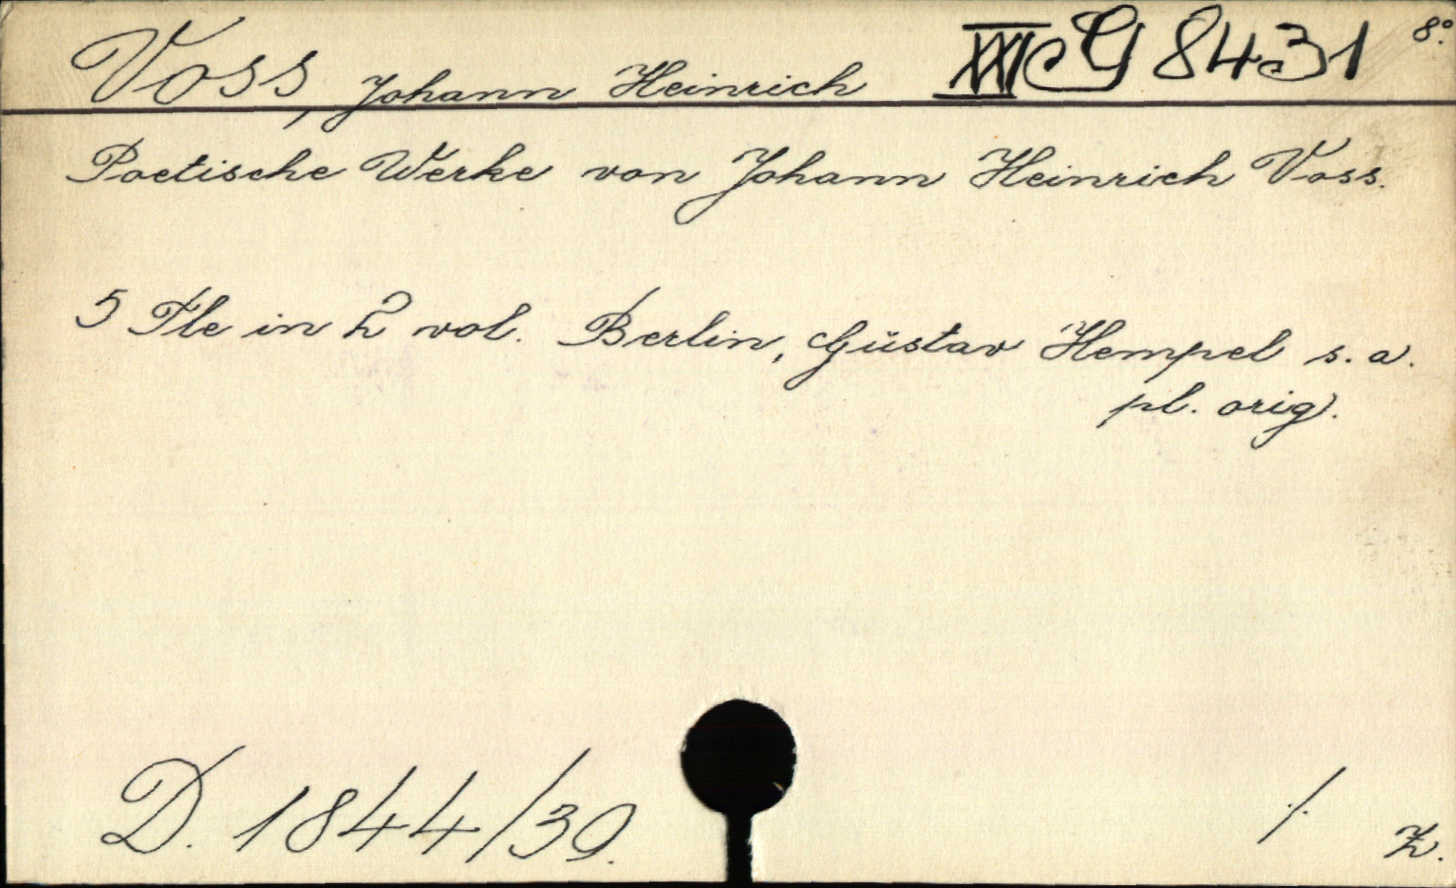 Voss, Johann Heinrich XXXIII G 8431 8°.
Poetische Werke von Johann Heinrich Voss.
5 Tle in 2 vol. Berlin, Gustav Hempel s. a.
pl. orig.
D. 1844/39.
Z.